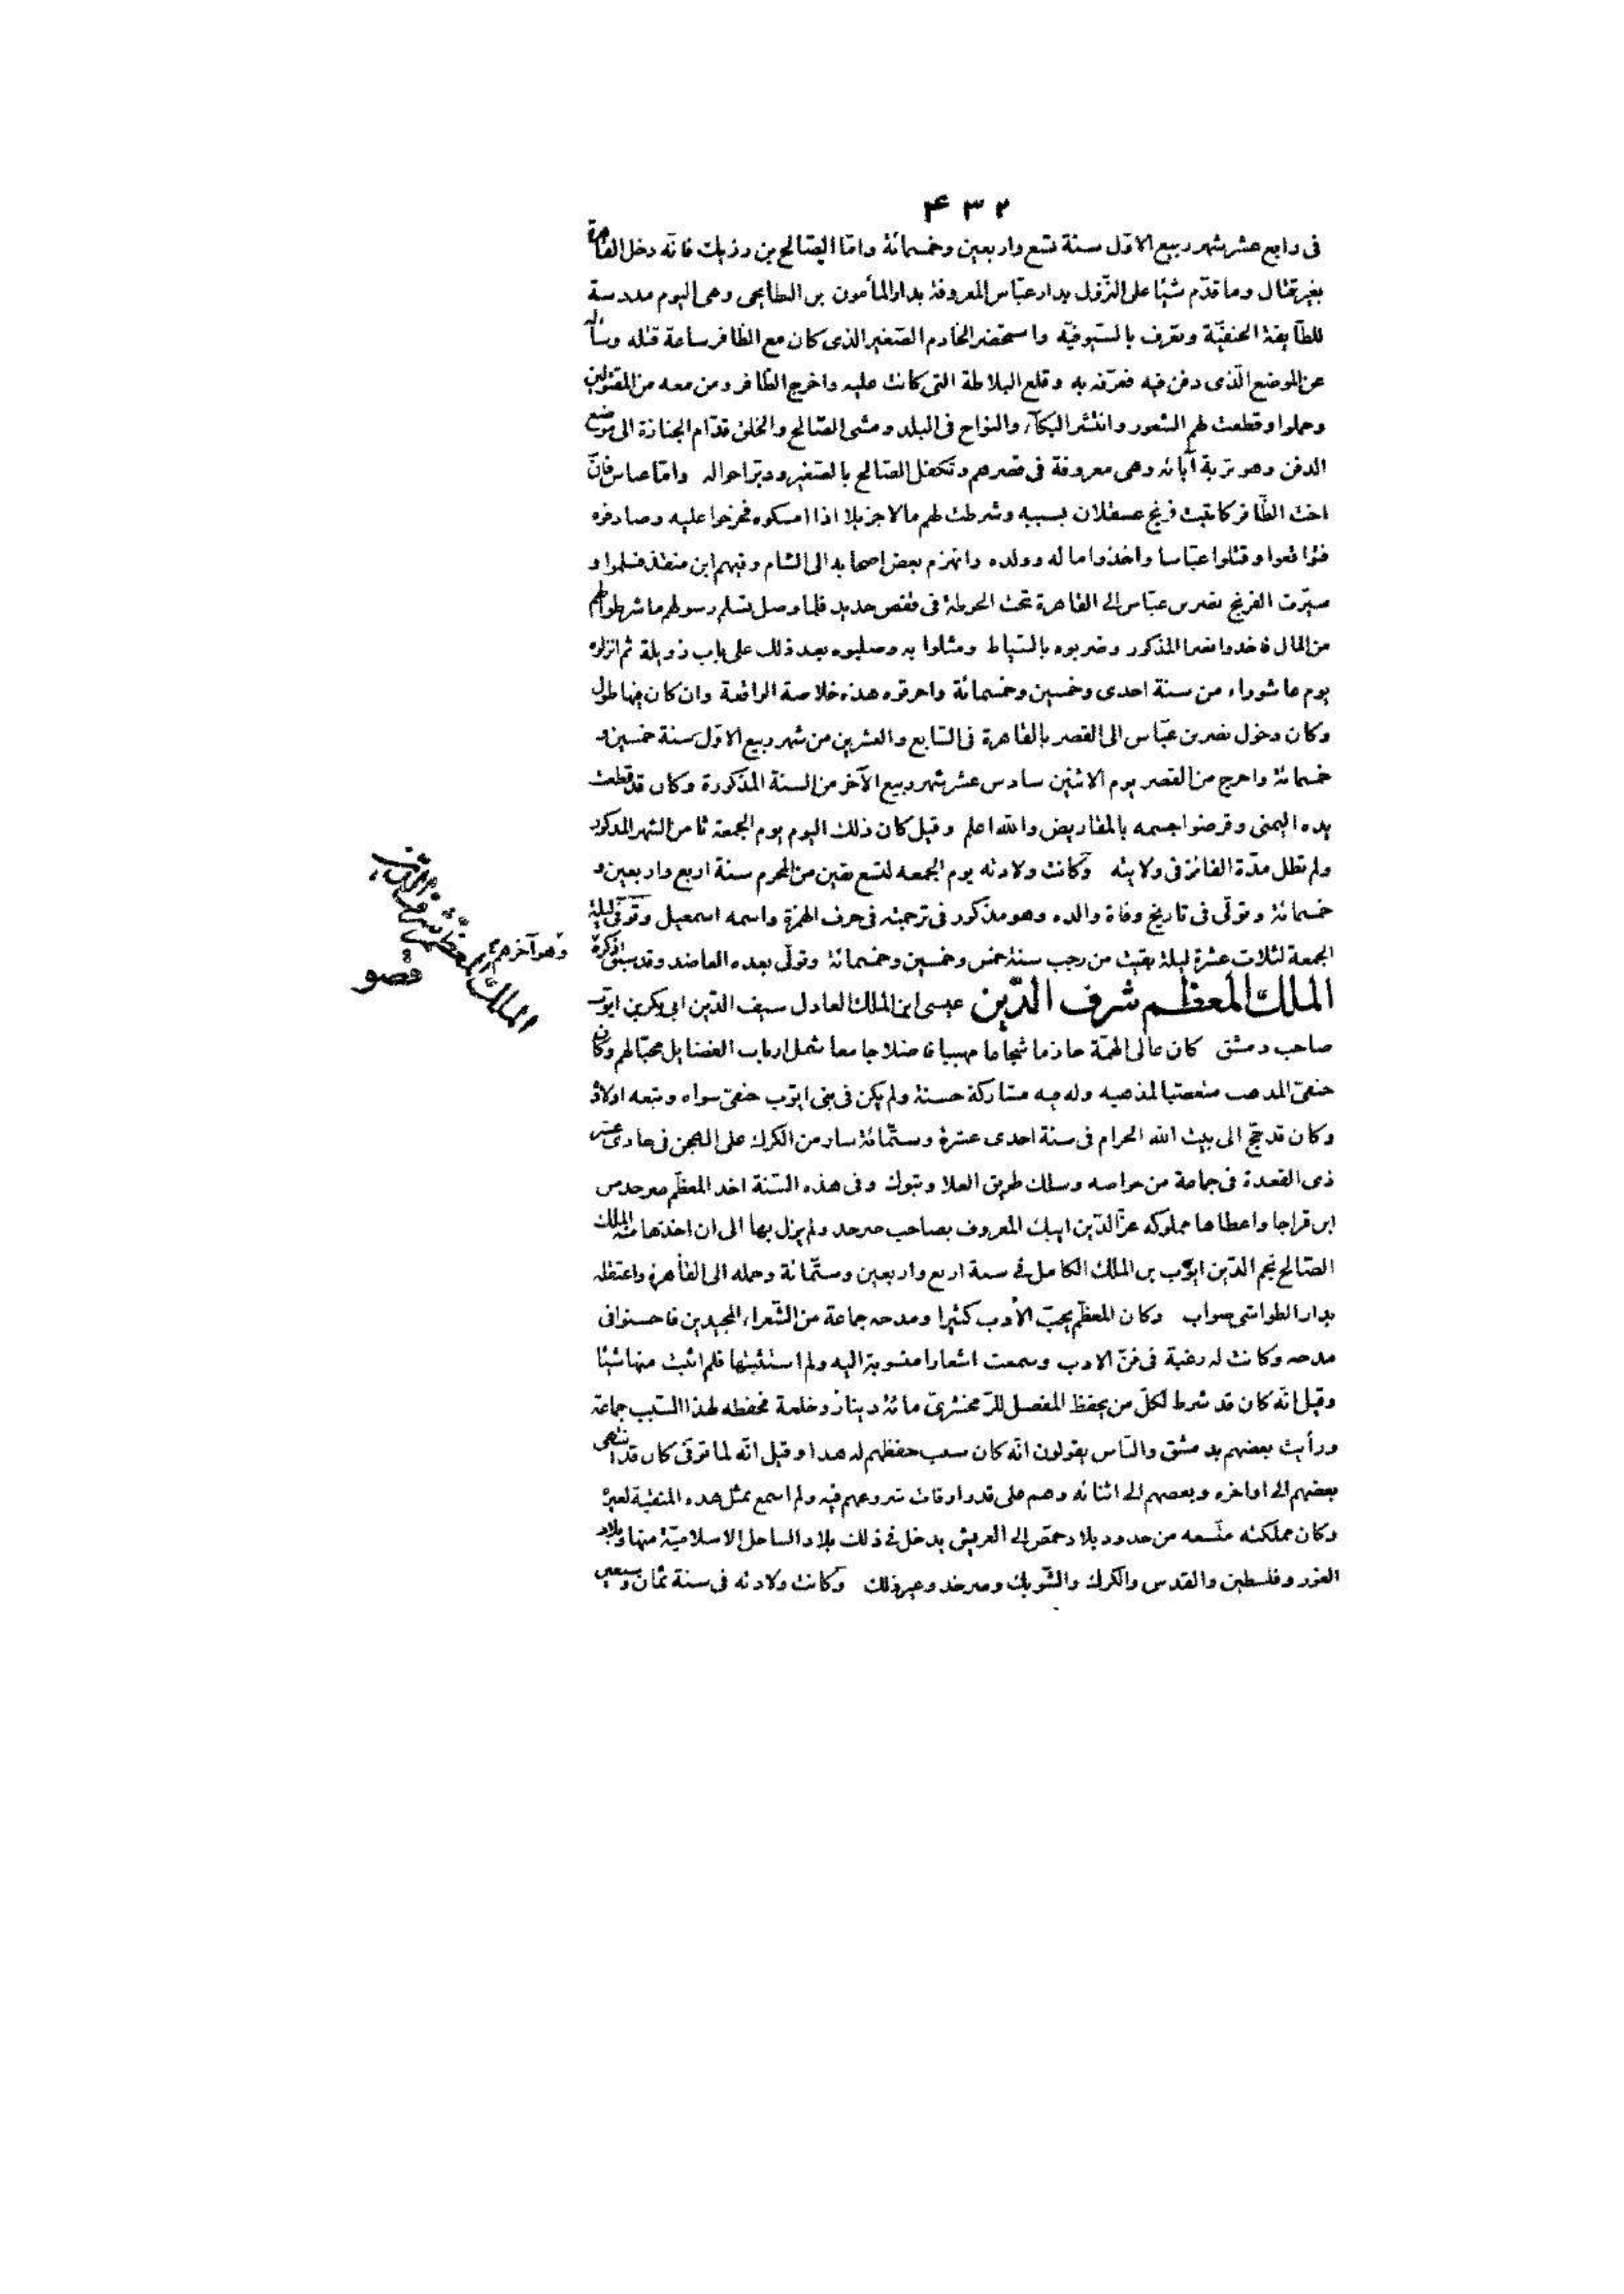 ۴۳۲
فى رابع عشر شهر ربيع الاوّل سنة تسع واربعين وخمسمائة وامّا الصّالح بن رزيك فانّه دخل القاهرة
بغير قتال وما قدّم شيئا على النّزول بدار عبّاس المعروفة بدار المأمون بن البطايحى وهى اليوم مدرسة
للطّايفة الحنفيّة وتعرف بالسّيوفيّة واستحضر الخادم الصّغير الذى كان مع الظافر ساعة قتله وسأله
عن الموضع الّذى دفن فيه فعرّفه به وقلع البلاطة التى كانت عليه واخرج الظّافر ومن معه من المقتولين
وحملوا وقطعت لهم الشعور وانتشر البكآء والنواح فى البلد ومشى الصّالح والخلق قدّام الجنازة الى موضع
الدفن وهو تربة آبائه وهى معروفة فى قصرهم وتكفل الصّالح بالصّغير ودبّر احواله وامّا عباس فانّ
اخت الظّافر كاتبت فرنج عسقلان بسببه وشرطت لهم مالا جزيلا اذا امسكوه فخرجوا عليه وصادفوه
فتواقعوا وقتلوا عبّاسا واخذوا ماله وولده وانهزم بعض اصحابه الى الشام وفيهم ابن منقذ فسلموا و
سيّرت الفرنج نصر بن عبّاس الى القاهرة تحت الحوطة فى قفص حديد فلما وصل تسلم رسولهم ما شرطوا لهم
من المال فاخذوا نصرا المذكور وضربوه بالسّياط ومثلوا به وصلبوه بعد ذلك على باب زويلة ثم انزلوه
يوم عاشوراء من سنة احدى وخمسين وخمسمائة واحرقوه هذه خلاصة الواقعة وان كان فيها طول
وكان دخول نصر بن عبّاس الى القصر بالقاهرة فى السّابع والعشرين من شهر ربيع الاوّل سنة خمسين و
خمسمائة واخرج من القصر يوم الاثنين سادس عشر شهر ربيع الآخر من السنة المذكورة وكان قد قطعت
يده اليمنى وقرضوا جسمه بالمقاريض والله اعلم وقيل كان ذلك اليوم يوم الجمعة ثامن الشهر المذكور
ولم تطل مدّة الفائز فى ولايته وكانت ولادته يوم الجمعه لتسع بقين من المحرم سنة اربع واربعين و
خمسمائة وتولّى فى تاريخ وفاة والده وهو مذكور فى ترجمته فى حرف الهمزة واسمه اسمعيل وتوفّى ليلة
الجمعة لثلات عشرة ليلة بقيت من رجب سنة خمس وخمسين وخمسمائة وتولّى بعده العاضد وقد سبق ذكره
وهو آخرهم
الملك المعظّم شرف الدّين عيسى ابن الملك العادل سيف الدّين ابى بكر بن ايّوب
الملك المعظّم شرف الدّين
صاحب دمشق كان عالى الهمّة حازما شجاعا مهيبا فاضلا جامعا شمل ارباب الفضايل محبّا لهم وكان
حنفىّ المذهب متعصّبا لمذهبه وله فيه مشاركة حسنة ولم يكن فى بنى ايّوب حنفىّ سواه وتبعه اولاده
وكان قد حجّ الى بيت الله الحرام فى سنة احدى عشرة وستّمائة سار من الكرك على الهجن فى حادى عشر
ذى القعدة فى جماعة من خواصه وسلك طريق العلا وتبوك وفى هذه السّنة اخذ المعظّم صرخد من
ابن قراجا واعطاها مملوكه عزّ الدّين ايبك المعروف بصاحب صرخد ولم يزل بها الى ان اخذها منه الملك
الصّالح نجم الدّين ايّوب بن الملك الكامل فى سنة اربع واربعين وستّمائة وحمله الى القاهرة واعتقله
بدار الطواشى صواب وكان المعظّم يحبّ الأدب كثيرا ومدحه جماعة من الشّعراء المجيدين فاحسنوا فى
مدحه وكانت له رغبة فى فنّ الادب وسمعت اشعارا منسوبة اليه ولم استثبتها فلم اثبت منها شيئا
وقيل انّه كان قد شرط لكلّ من يحفظ المفصل للزّمخشرىّ مائة دينار وخلعة فحفظه لهذا السّبب جماعة
ورأيت بعضهم بدمشق والنّاس يقولون انّه كان سبب حفظهم له هذا وقيل انّه لما توفّى كان قد انتهى
بعضهم الى اواخره وبعضهم الى اثنائه وهم على قدر اوقات شروعهم فيه ولم اسمع بمثل هذه المنقبة لغيره
وكان مملكته متّسعه من حدود بلاد حمص الى العريش يدخل فى ذلك بلاد الساحل الاسلاميّة منها وبلاد
الغور وفلسطين والقدس والكرك والشّوبك وصرخد وغير ذلك وكانت ولادته فى سنة ثمان وسبعين